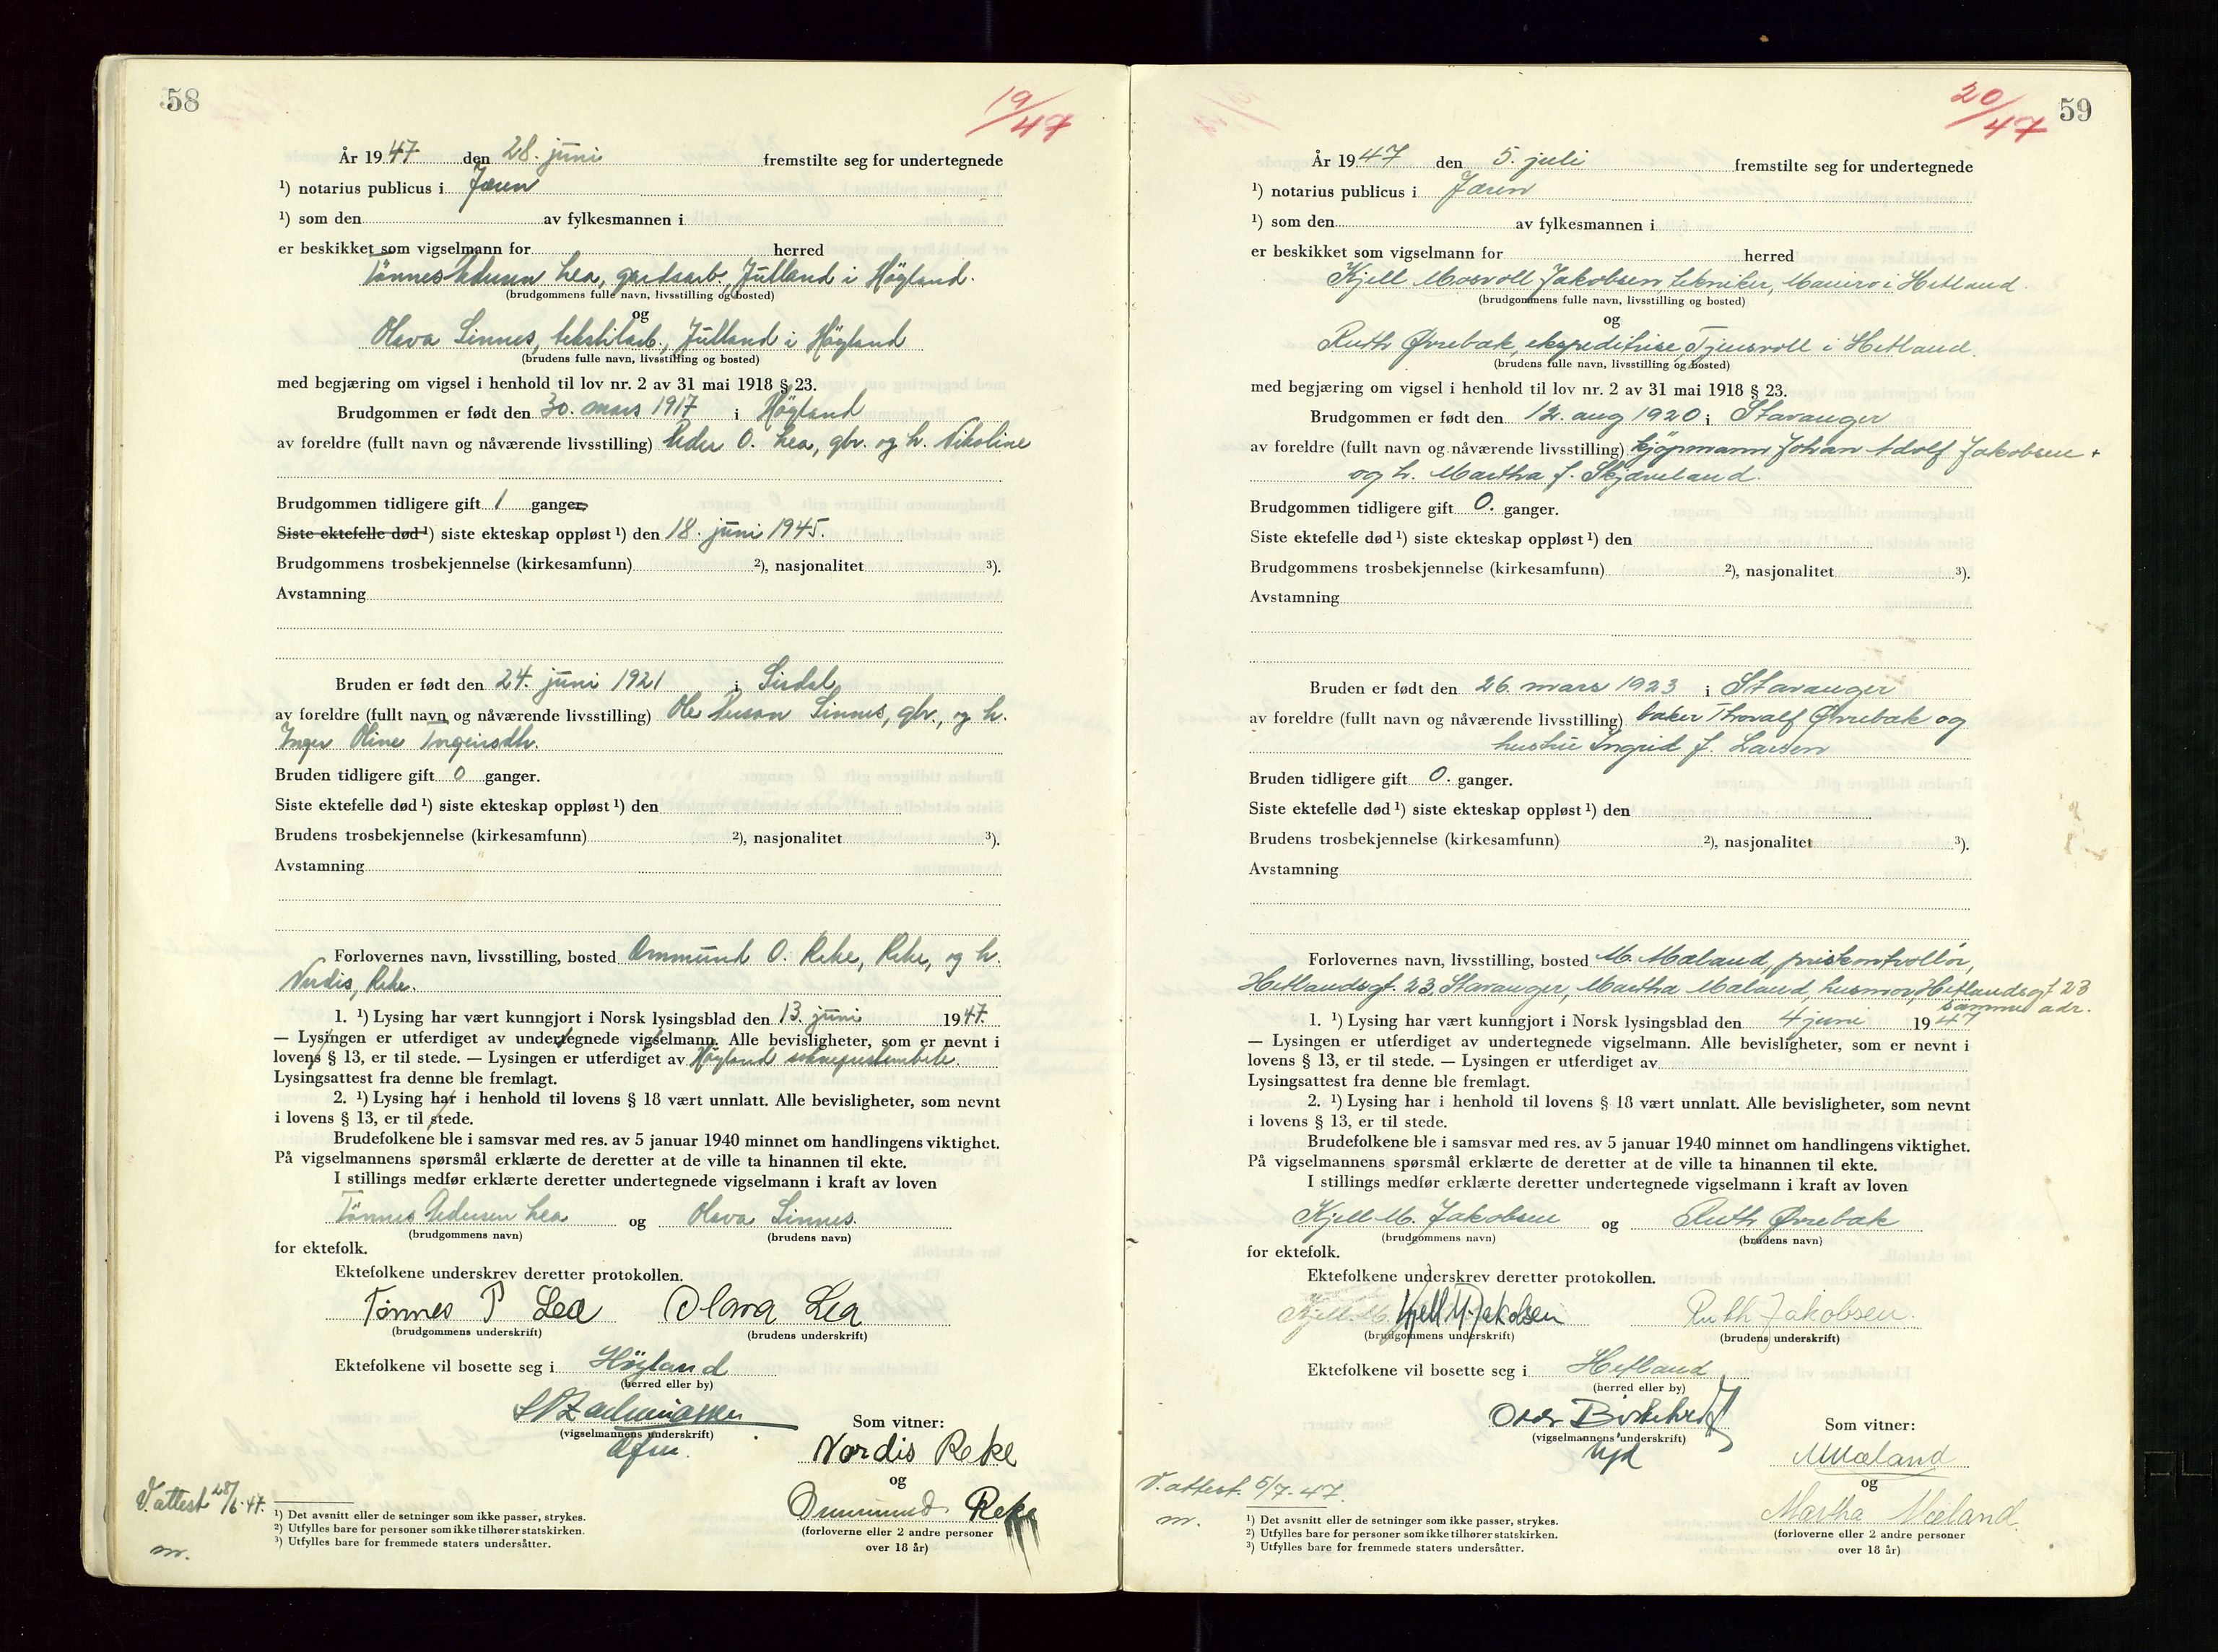 58
19/47
År 1947 den 28. juni fremstilte seg for undertegnede
¹) notarius publicus i Jæren
¹) som den av fylkesmannen i
er beskikket som vigselmann for herred
Tönnes Pedersen Lea, gardsarb., Jutland i Höyland.
(brudgommens fulle navn, livsstilling og bosted)
og
Olava Sinnes, tekstilarb., Jutland i Höyland
(brudens fulle navn, livsstilling og bosted)
med begjæring om vigsel i henhold til lov nr. 2 av 31 mai 1918 § 23.
Brudgommen er født den 30. mars 1917 i Höyland
av foreldre (fullt navn og nåværende livsstilling) Peder O. Lea, gbr. og h. Nikoline
Brudgommen tidligere gift 1 ganger.
Siste ektefelle død ¹) siste ekteskap oppløst ¹) den 18. juni 1945.
Brudgommens trosbekjennelse (kirkesamfunn) ²), nasjonalitet ³).
Avstamning
Bruden er født den 24. juni 1921 i Sirdal
av foreldre (fullt navn og nåværende livsstilling) Ole Person Sinnes, gbr., og h.
Inger Oline Torgeirsdtr.
Bruden tidligere gift 0 ganger.
Siste ektefelle død ¹) siste ekteskap oppløst ¹) den
Brudens trosbekjennelse (kirkesamfunn) ²), nasjonalitet ³).
Avstamning
Forlovernes navn, livsstilling, bosted Ommund O. Reke, Reke, og h.
Nordis, Reke.
1. ¹) Lysing har vært kunngjort i Norsk lysingsblad den 13. juni 1947.
— Lysingen er utferdiget av undertegnede vigselmann. Alle bevisligheter, som er nevnt i
lovens § 13, er til stede. — Lysingen er utferdiget av Höyland sokneprestembete.
Lysingsattest fra denne ble fremlagt.
2. ¹) Lysing har i henhold til lovens § 18 vært unnlatt. Alle bevisligheter, som nevnt
i lovens § 13, er til stede.
Brudefolkene ble i samsvar med res. av 5 januar 1940 minnet om handlingens viktighet.
På vigselmannens spørsmål erklærte de deretter at de ville ta hinannen til ekte.
I stillings medfør erklærte deretter undertegnede vigselmann i kraft av loven
Tönnes Pedersen Lea og Olava Sinnes.
(brudgommens navn) (brudens navn)
for ektefolk.
Ektefolkene underskrev deretter protokollen.
Tönnes P Lea Olava Lea
(brudgommens underskrift) (brudens underskrift)
Ektefolkene vil bosette seg i Höyland
(herred eller by)
(vigselmannens underskrift)
Som vitner:
Nordis Reke
og
Ommund Reke
(forloverne eller 2 andre personer
over 18 år)
V. attest 28/6-47.
m.
¹) Det avsnitt eller de setninger som ikke passer, strykes.
²) Utfylles bare for personer som ikke tilhører statskirken.
³) Utfylles bare for fremmede staters undersåtter.
59
20/47
År 1947 den 5. juli fremstilte seg for undertegnede
¹) notarius publicus i Jæren
¹) som den av fylkesmannen i
er beskikket som vigselmann for herred
Kjell Mosvoll Jakobsen, tekniker, Mariero i Hetland.
(brudgommens fulle navn, livsstilling og bosted)
og
Ruth Øvrebak, ekspeditrise, Tjensvoll i Hetland.
(brudens fulle navn, livsstilling og bosted)
med begjæring om vigsel i henhold til lov nr. 2 av 31 mai 1918 § 23.
Brudgommen er født den 12. aug 1920 i Stavanger
av foreldre (fullt navn og nåværende livsstilling) kjøpmann Johan Adolf Jakobsen +
og h. Martha f. Skjæveland.
Brudgommen tidligere gift 0. ganger.
Siste ektefelle død ¹) siste ekteskap oppløst ¹) den
Brudgommens trosbekjennelse (kirkesamfunn) ²), nasjonalitet ³).
Avstamning
Bruden er født den 26. mars 1923 i Stavanger
av foreldre (fullt navn og nåværende livsstilling) baker Thoralf Øvrebak og
hustru Ingrid f. Larsen
Bruden tidligere gift 0. ganger.
Siste ektefelle død ¹) siste ekteskap oppløst ¹) den
Brudens trosbekjennelse (kirkesamfunn) ²), nasjonalitet ³).
Avstamning
Forlovernes navn, livsstilling, bosted M. Mæland, priskontrollör,
Hetlandsgt. 23, Stavanger, Martha Mæland, husmor, Hetlandsgt 23
samme adr.
1. ¹) Lysing har vært kunngjort i Norsk lysingsblad den 4 juni 1947
— Lysingen er utferdiget av undertegnede vigselmann. Alle bevisligheter, som er nevnt i
lovens § 13, er til stede. — Lysingen er utferdiget av
Lysingsattest fra denne ble fremlagt.
2. ¹) Lysing har i henhold til lovens § 18 vært unnlatt. Alle bevisligheter, som nevnt
i lovens § 13, er til stede.
Brudefolkene ble i samsvar med res. av 5 januar 1940 minnet om handlingens viktighet.
På vigselmannens spørsmål erklærte de deretter at de ville ta hinannen til ekte.
I stillings medfør erklærte deretter undertegnede vigselmann i kraft av loven
Kjell M. Jakobsen og Ruth Øvrebak
(brudgommens navn) (brudens navn)
for ektefolk.
Ektefolkene underskrev deretter protokollen.
Kjell M. Kjell M Jakobsen Ruth Jakobsen.
(brudgommens underskrift) (brudens underskrift)
Ektefolkene vil bosette seg i Hetland
(herred eller by)
(vigselmannens underskrift)
Som vitner:
M Mæland
og
Martha Mæland.
(forloverne eller 2 andre personer
over 18 år)
V. attest. 5/7-47.
m.
¹) Det avsnitt eller de setninger som ikke passer, strykes.
²) Utfylles bare for personer som ikke tilhører statskirken.
³) Utfylles bare for fremmede staters undersåtter.